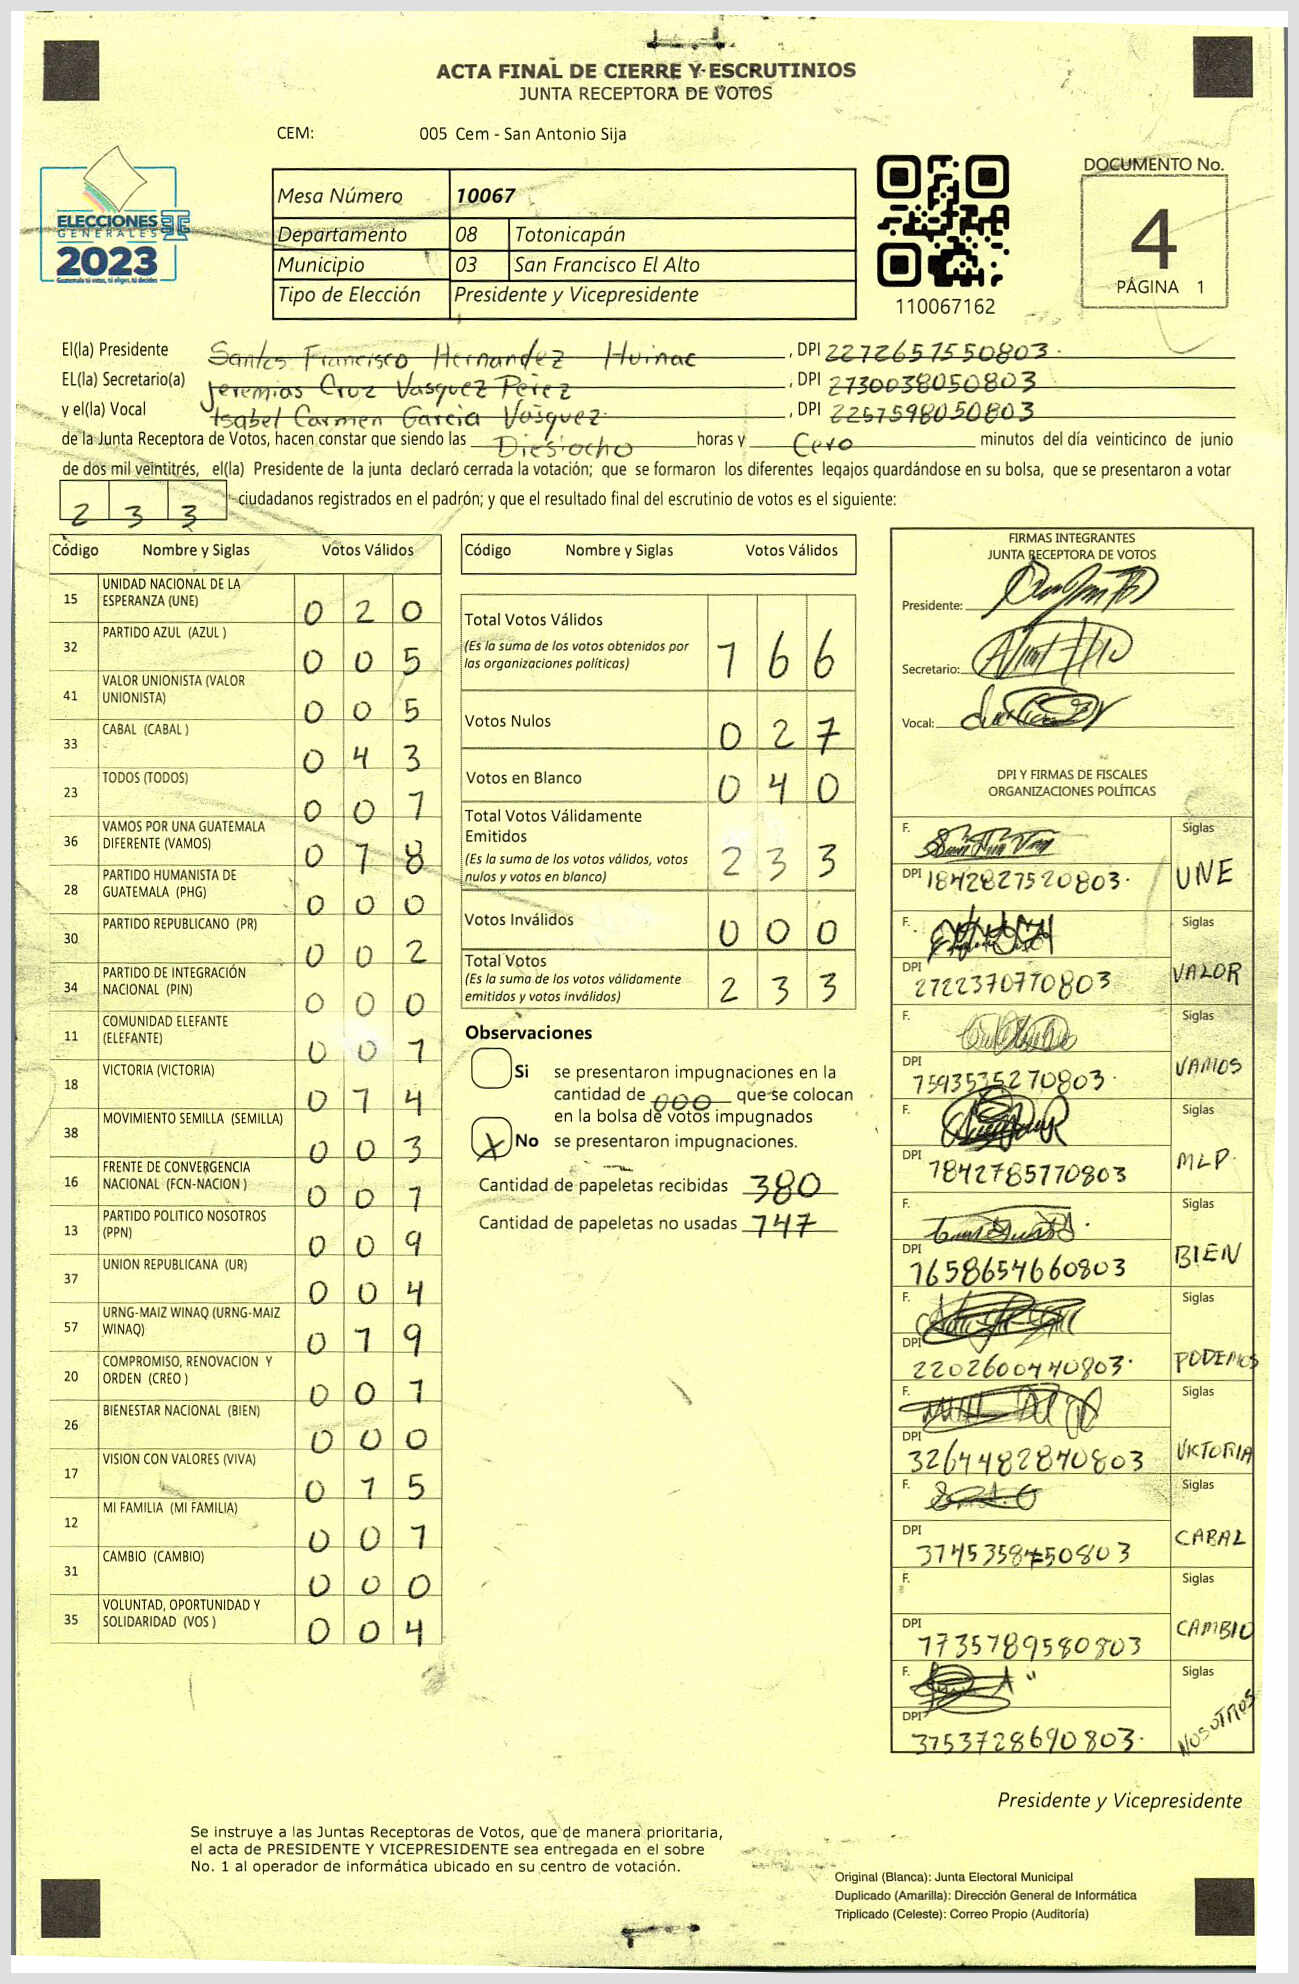 ACTA FINAL DE CIERRE Y ESCRUTINIOS
JUNTA RECEPTORA DE VOTOS
CEM: 005 Cem - San Antonio Sija
ELECCIONES
GENERALES
2023
Guatemala tú votas, tú eliges, tú decides
Mesa Número 10067
Departamento 08 Totonicapán
Municipio 03 San Francisco El Alto
Tipo de Elección Presidente y Vicepresidente
110067162
DOCUMENTO No.
4
PÁGINA 1
El(la) Presidente Santos Francisco Hernandez Huinac , DPI 2272657550803.
EL(la) Secretario(a) Jeremias Cruz Vasquez Perez , DPI 2730038050803
y el(la) Vocal Isabel Carmen Garcia Vásquez. , DPI 2257598050803
de la Junta Receptora de Votos, hacen constar que siendo las Diesiocho horas y Cero minutos del día veinticinco de junio
de dos mil veintitrés, el(la) Presidente de la junta declaró cerrada la votación; que se formaron los diferentes legajos guardándose en su bolsa, que se presentaron a votar
2 3 3 ciudadanos registrados en el padrón; y que el resultado final del escrutinio de votos es el siguiente:
Código Nombre y Siglas Votos Válidos
15 UNIDAD NACIONAL DE LA ESPERANZA (UNE) 0 2 0
32 PARTIDO AZUL (AZUL ) 0 0 5
41 VALOR UNIONISTA (VALOR UNIONISTA) 0 0 5
33 CABAL (CABAL ) 0 4 3
23 TODOS (TODOS) 0 0 1
36 VAMOS POR UNA GUATEMALA DIFERENTE (VAMOS) 0 1 8
28 PARTIDO HUMANISTA DE GUATEMALA (PHG) 0 0 0
30 PARTIDO REPUBLICANO (PR) 0 0 2
34 PARTIDO DE INTEGRACIÓN NACIONAL (PIN) 0 0 0
11 COMUNIDAD ELEFANTE (ELEFANTE) 0 0 1
18 VICTORIA (VICTORIA) 0 1 4
38 MOVIMIENTO SEMILLA (SEMILLA) 0 0 3
16 FRENTE DE CONVERGENCIA NACIONAL (FCN-NACION ) 0 0 1
13 PARTIDO POLITICO NOSOTROS (PPN) 0 0 9
37 UNION REPUBLICANA (UR) 0 0 4
57 URNG-MAIZ WINAQ (URNG-MAIZ WINAQ) 0 1 9
20 COMPROMISO, RENOVACION Y ORDEN (CREO ) 0 0 1
26 BIENESTAR NACIONAL (BIEN) 0 0 0
17 VISION CON VALORES (VIVA) 0 1 5
12 MI FAMILIA (MI FAMILIA) 0 0 1
31 CAMBIO (CAMBIO) 0 0 0
35 VOLUNTAD, OPORTUNIDAD Y SOLIDARIDAD (VOS ) 0 0 4
Código Nombre y Siglas Votos Válidos
Total Votos Válidos 1 6 6
(Es la suma de los votos obtenidos por
las organizaciones políticas)
Votos Nulos 0 2 7
Votos en Blanco 0 4 0
Total Votos Válidamente
Emitidos 2 3 3
(Es la suma de los votos válidos, votos
nulos y votos en blanco)
Votos Inválidos 0 0 0
Total Votos 2 3 3
(Es la suma de los votos válidamente
emitidos y votos inválidos)
Observaciones
Si se presentaron impugnaciones en la
cantidad de 000 que se colocan
en la bolsa de votos impugnados
X No se presentaron impugnaciones.
Cantidad de papeletas recibidas 380
Cantidad de papeletas no usadas 147
FIRMAS INTEGRANTES
JUNTA RECEPTORA DE VOTOS
Presidente:
Secretario:
Vocal:
DPI Y FIRMAS DE FISCALES
ORGANIZACIONES POLÍTICAS
F. Siglas
DPI 1842827520803. UNE
F. Siglas
DPI 2722370770803 VALOR
F. Siglas
DPI 1593535270803. VAMOS
F. Siglas
DPI 1842785770803 MLP.
F. Siglas
DPI 1658654660803 BIEN
F. Siglas
DPI 2202600440803. PODEMOS
F. Siglas
DPI 3264482840803 VICTORIA
F. Siglas
DPI 3745358450803 CABAL
F. Siglas
DPI 1735789580803 CAMBIO
F. Siglas
DPI 3753728690803. NOSOTROS
Presidente y Vicepresidente
Se instruye a las Juntas Receptoras de Votos, que de manera prioritaria,
el acta de PRESIDENTE Y VICEPRESIDENTE sea entregada en el sobre
No. 1 al operador de informática ubicado en su centro de votación.
Original (Blanca): Junta Electoral Municipal
Duplicado (Amarilla): Dirección General de Informática
Triplicado (Celeste): Correo Propio (Auditoría)